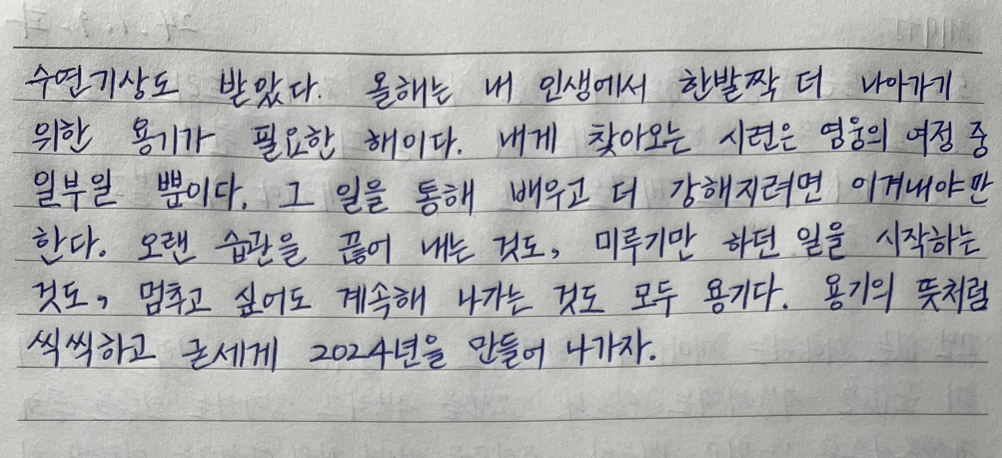 수연기상도 받았다. 올해는 내 인생에서 한발짝 더 나아가기
위한 용기가 필요한 해이다. 내게 찾아오는 시련은 영웅의 여정 중
일부일 뿐이다. 그 일을 통해 배우고 더 강해지려면 이겨내야만
한다. 오랜 습관을 끊어 내는 것도, 미루기만 하던 일을 시작하는
것도, 멈추고 싶어도 계속해 나가는 것도 모두 용기다. 용기의 뜻처럼
씩씩하고 굳세게 2024년을 만들어 나가자.